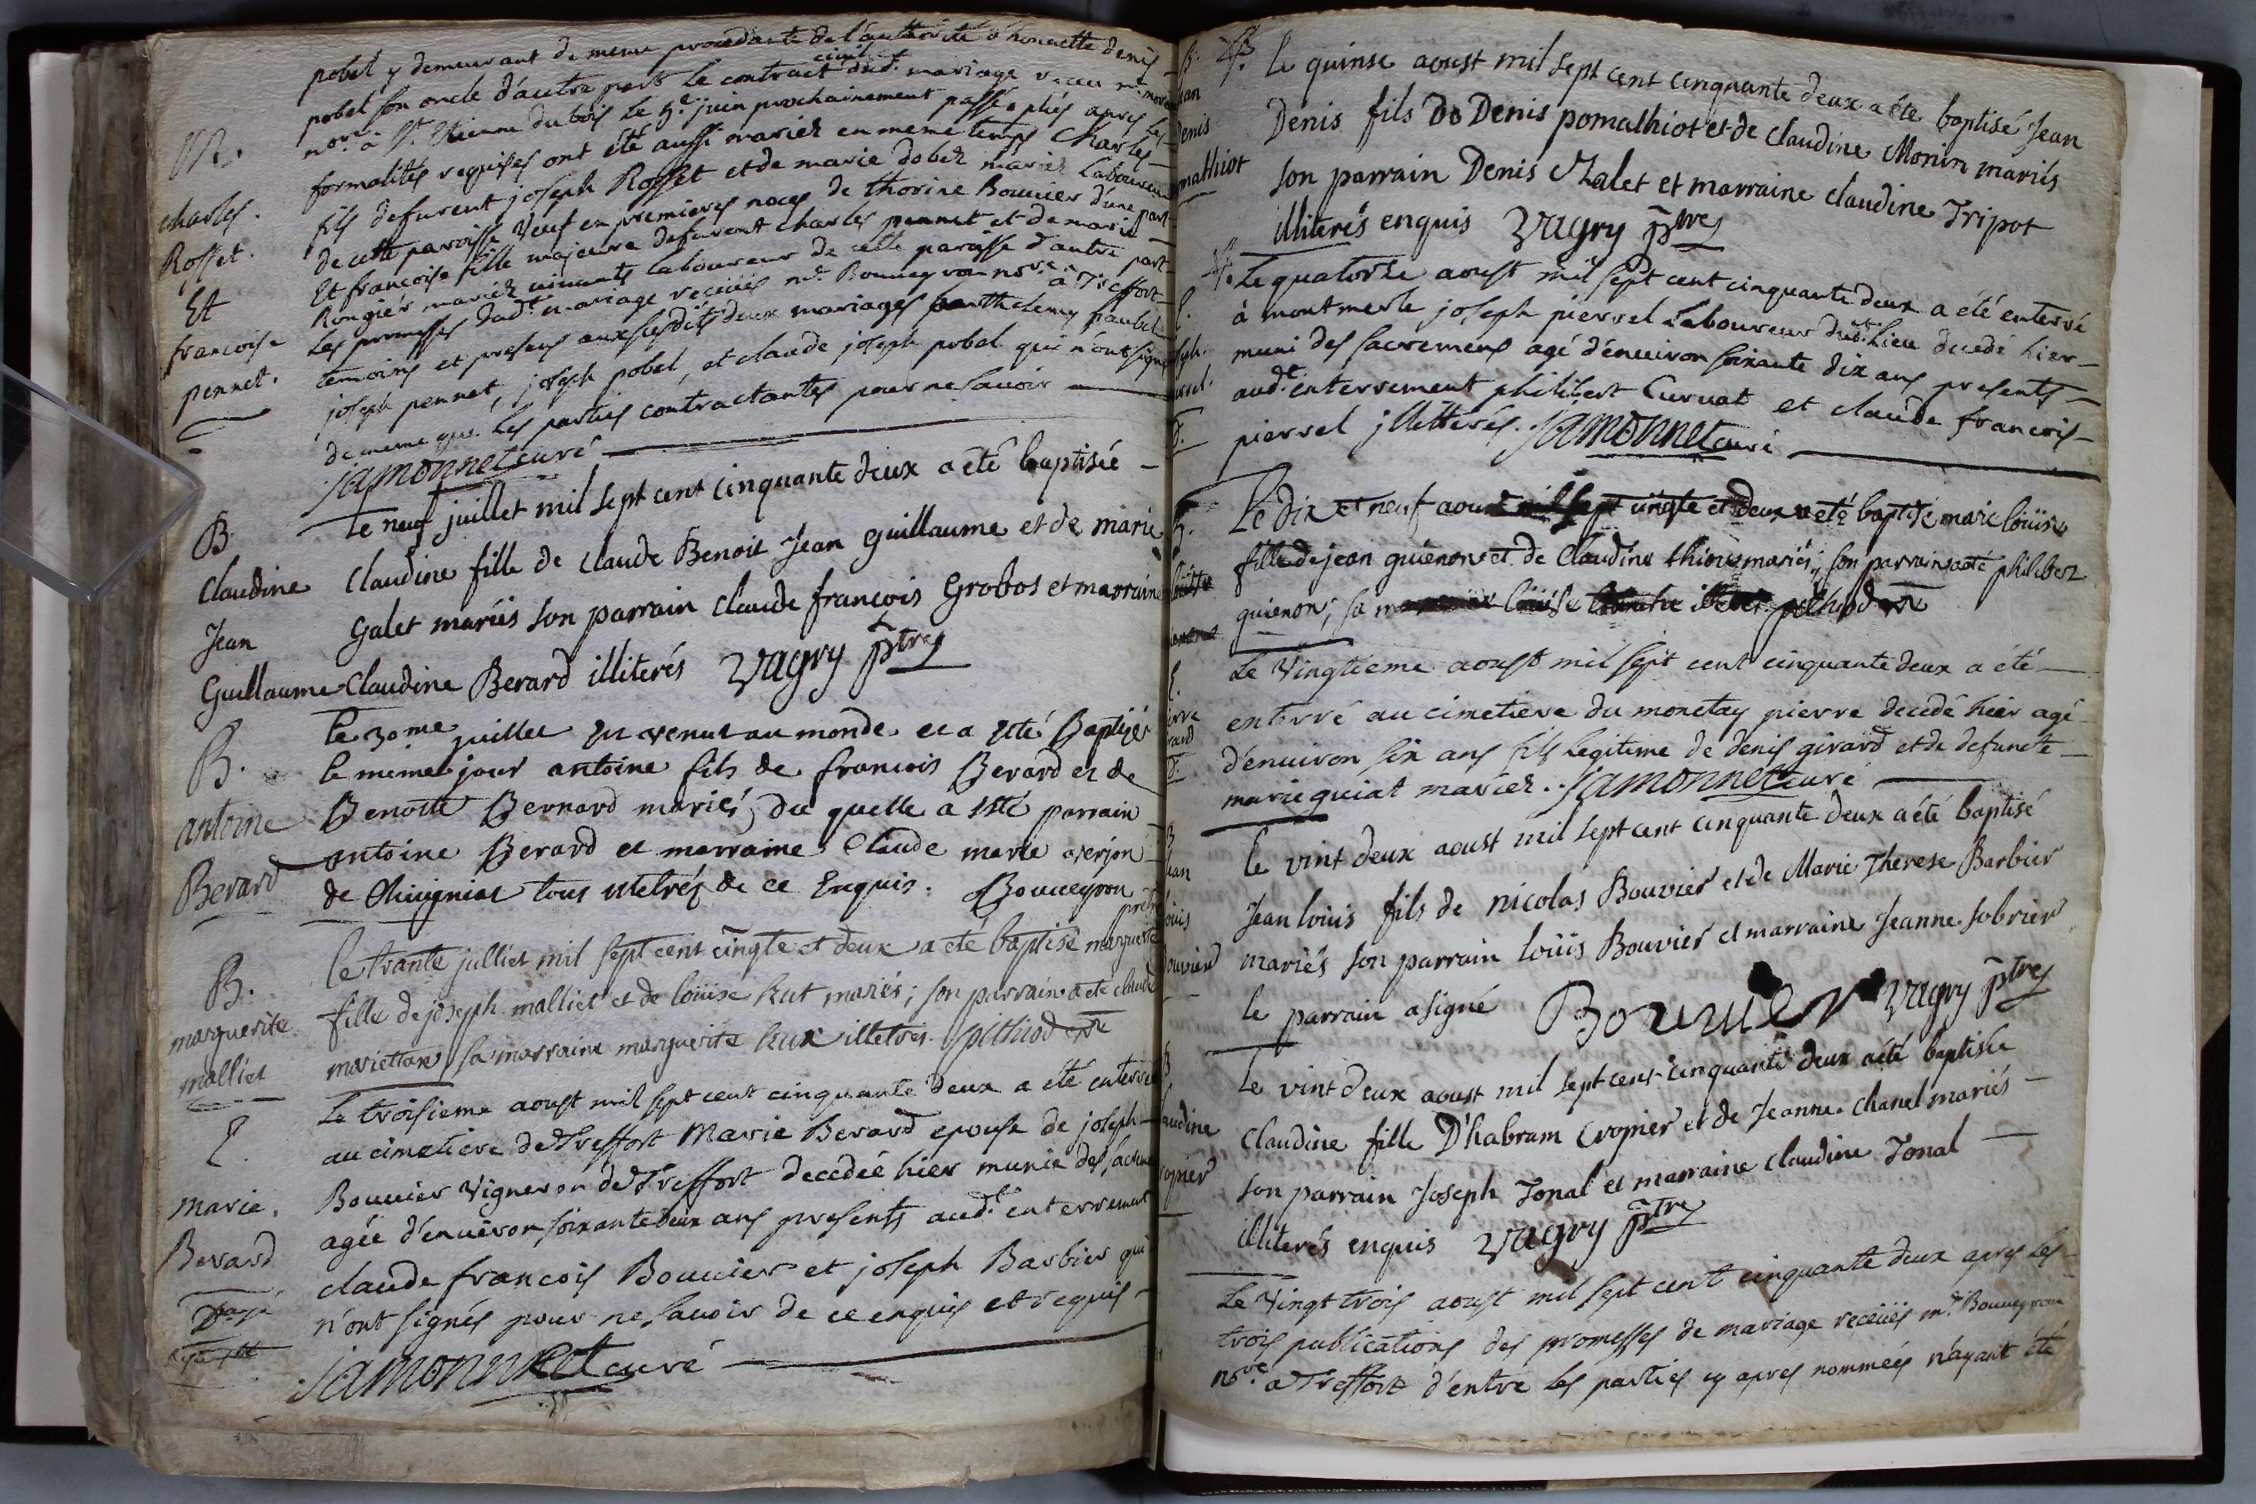 pobel y demeurant de meme procedante de l'authorité d'honnette denis
pobel son oncle d'autre part le contract civil dud.t mariage receu m.e
nor.e a St. Etienne du bois le 9.e juin prochainement passé aplés apres les
formalités requises ont été aussi mariéz en meme temps Charles
fils defurent joseph Rosset et de marie dobez mariez Laboureur
de cette paroisse veuf en premieres noces de thorine Bouvier d'une part
Et francoise fille majeure defurent charles pennet et de marie
Rongier mariéz vivants laboureur de cette paroisse d'autre part
Les promesses dud.t mariage receües m.e Bouveyron nore. a Treffort
temoins et presens aux susdits deux mariages barthelemy paubel
joseph pennet, joseph pobel, et claude joseph pobel qui n'ont signé
de meme que les parties contractantes pour ne savoir
jamonnet curé
M.
charles.
Rosset.
Et
francoise
pennet.
Le neuf juillet mil sept cent cinquante deux a été baptisée
Claudine fille de Claude Benoit Jean Guillaume et de marie
Galet mariés son parrain Claude françois Grobos et marraine
Claudine Berard illiterés Vagry ptre
B.
Claudine
Jean
Guillaume
Le 30me juillet est venut au monde et a eté Baptisés
le meme jour antoine fils de francois Berard et de
Benoitte Bernard mariés, du quelle a eté parrain
antoine Berard et marraine Claude marie
de Chivigniat tous de ce Enquis. Bouveyron pretre
B.
antoine
Berard
Le trante julliet mil sept cent cingte et deux a eté baptisé marguerite
fille de joseph malliet et de loüise kut mariés; son parrain a eté claude
mariettan sa marraine marguerite kux illetrés. pithiod
B.
marguerite
malliet
Le troisieme aoust mil sept cent cinquante deux a eté enterrée
au cimetiere de Treffort Marie Berard epouse de joseph
Bouvier Vigneron de Treffort decedée hier munie des sacremens
agée d'environ soixante deux ans presents aud.t enterrement
claude francois Bouvier et joseph Barbier qui
n'ont signés pour ne savoir de ce enquis et requis
jamonnet curé
E.
Marie.
Berard
Le quinse aoust mil sept cent cinquante deux a éte baptisé Jean
Denis fils de Denis pomathiot et de Claudine Monin mariés
son parrain Denis Malet et marraine Claudine Tripot
illiterés enquis Vagry ptre
B.
Jean
Denis
mathiot
Le quatorze aoust mil sept cent cinquante deux a été enterré
à montmerle joseph pierrel Laboureur dud.t Lieu decedé hier
muni des sacremens agé d'environ soixante dix ans presents
aud.t enterrement philibert Curvat et claude francois
pierrel jlletterés. jamonnet curé
Le dix et neuf aoust mil sept cingte et deux a eté baptisé marie loüise
fille de jean guienon et de Claudine mariés; son parrain a eté philibert
guienon; sa loüise pithiod
Le Vingtieme aoust mil sept cent cinquante deux a été
enterré au cimetiere du monetay pierre decedé hier agé
d'environ six ans fils legitime de denis girard et de defuncte
marie guiat mariéz. jamonnet curé
Le vint deux aoust mil sept cent cinquante deux a été baptisé
Jean loüis fils de nicolas Bouvier et de Marie Therese Barbier
mariés son parrain loüis Bouvier et marraine Jeanne sobrier
le parrain a signé Bouvier Vagry ptre
Le vint deux aoust mil sept cent cinquante deux a été baptisée
Claudine fille D'habram Cropier et de Jeanne Chanel mariés
son parrain Joseph Tonal et marraine Claudine Tonal
illiterés enquis Vagry ptre
Le Vingt trois aoust mil sept cent cinquante deux apres les
trois publications des promesses de mariage receües m.e Bouveyron
nore. a Treffort d'entre les parties cy apres nommées n'ayant été